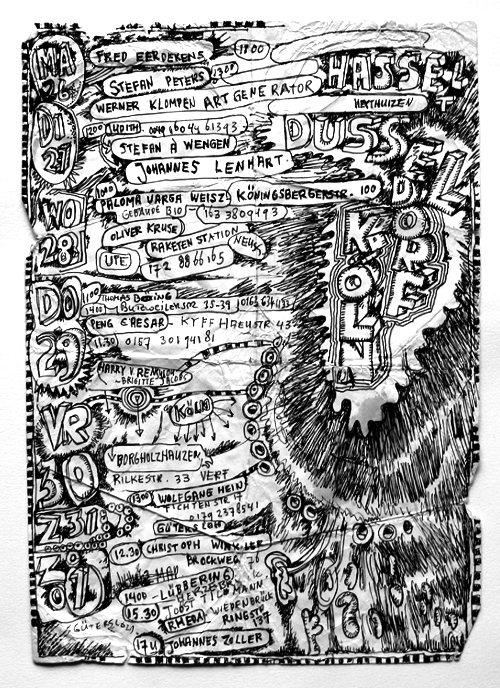 MA
26
FRED EERDEKENS
1800
STEFAN PETERS
1300
WERNER KLOMPEN ART GENERATOR
HASSELT
HEYTHUIZEN
DI
27
1200
JUDITH
STEFAN A WENGEN
JOHANNES LENHART.
DUSSELDORF
WO
28
1000
PALOMA VARGA WEISZ
KÖNINGSBERGERSTR. 100
GEBÄUDE B10
163 3809493
OLIVER KRUSE
RAKETEN STATION
NEUSS
UTE
KÖLN
DO
29
1100
THOMAS
1400
35-39
PENG CAESAR - KYFFHAEUSTR 43
11.30
0157 301 94181
HARRY V.
BRIGITTE
VR
30
KÖLN
BORGHOLZHAUZEN
RILKESTR. 33 VERF
1300
WOLFGANG HEIN
FICHTENSTR 17
0179 2378541
Z 31
GÜTERSLOH
12.30
CHRISTOPH WINKLER
BROCKWEG 76
ZO
1
1400 - LÜBBERING
15.30
JOOST TILLMANN
RHEDA WIEDENBRÜCK
RINGSTR
137
GÜTERSLOH
17U
JOHANNES ZOLLER